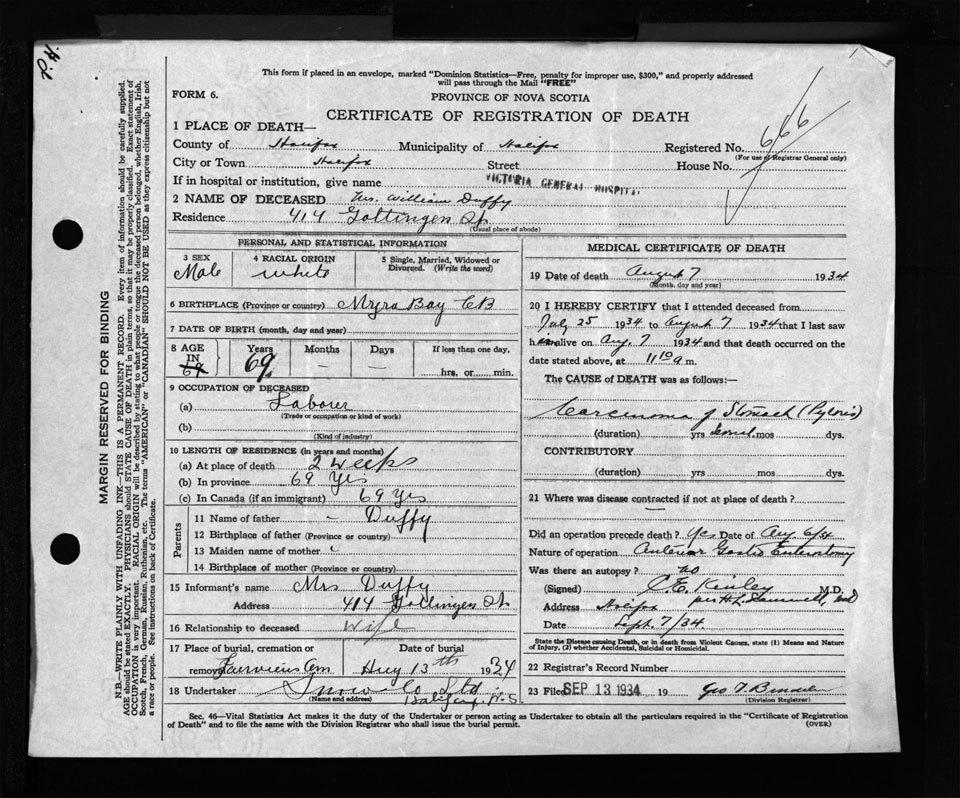 H.J.
This form if placed in an envelope, marked "Dominion Statistics—Free, penalty for improper use, $300," and properly addressed
will pass through the Mail "FREE"
FORM 6.
PROVINCE OF NOVA SCOTIA
CERTIFICATE OF REGISTRATION OF DEATH
1 PLACE OF DEATH—
County of Halifax Municipality of Halifax Registered No. 666
(For use of Registrar General only)
City or Town Halifax Street House No.
If in hospital or institution, give name VICTORIA GENERAL HOSPITAL
2 NAME OF DECEASED William Duffy
Residence 414 Gottingen St
(Usual place of abode)
PERSONAL AND STATISTICAL INFORMATION
3 SEX 4 RACIAL ORIGIN 5 Single, Married, Widowed or
Divorced. (Write the word)
Male white
6 BIRTHPLACE (Province or country) Myra Bay CB
7 DATE OF BIRTH (month, day and year)
8 AGE Years Months Days If less than one day,
IN
69 69 – – hrs. or min.
9 OCCUPATION OF DECEASED
(a) Laborer
(Trade or occupation or kind of work)
(b)
(Kind of industry)
10 LENGTH OF RESIDENCE (in years and months)
(a) At place of death 2 weeks
(b) In province 69 Yrs
(c) In Canada (if an immigrant) 69 Yrs
Parents
11 Name of father – Duffy
12 Birthplace of father (Province or country)
13 Maiden name of mother
14 Birthplace of mother (Province or country)
15 Informant's name Mrs Duffy
Address 414 Gottingen St
16 Relationship to deceased Wife
17 Place of burial, cremation or Date of burial
removal Fairview Cem Aug 13th 1934
18 Undertaker Snow Co Ltd
(Name and address) Halifax N.S.
MEDICAL CERTIFICATE OF DEATH
19 Date of death August 7 1934
(Month, day and year)
20 I HEREBY CERTIFY that I attended deceased from
July 25 1934 to August 7 1934 that I last saw
him alive on Aug. 7 1934 and that death occurred on the
date stated above, at 11 10 a m.
The CAUSE of DEATH was as follows:—
Carcinoma of Stomach (Pyloris)
(duration) yrs. mos dys.
CONTRIBUTORY
(duration) yrs. mos. dys.
21 Where was disease contracted if not at place of death?
—
Did an operation precede death? Yes Date of Aug 6/34
Nature of operation Anterior Gastro Enterostomy
Was there an autopsy? no
(Signed) C.E. Kinley M.D.
Address Halifax per
Date Sept. 7/34.
State the Disease causing Death, or in death from Violent Causes, state (1) Means and Nature
of Injury, (2) whether Accidental, Suicidal or Homicidal.
22 Registrar's Record Number
23 Filed SEP 13 1934 19
(Division Registrar)
Sec. 46—Vital Statistics Act makes it the duty of the Undertaker or person acting as Undertaker to obtain all the particulars required in the "Certificate of Registration
of Death" and to file the same with the Division Registrar who shall issue the burial permit. (OVER)
MARGIN RESERVED FOR BINDING
N.B.—WRITE PLAINLY WITH UNFADING INK—THIS IS A PERMANENT RECORD. Every item of information should be carefully supplied.
AGE should be stated EXACTLY. PHYSICIANS should STATE CAUSE OF DEATH in plain terms, so that it may be properly classified. Exact statement of
OCCUPATION is very important. RACIAL ORIGIN will be described by stating to what people or tongue the deceased person belonged, whether English, Irish,
Scotch, French, German, Russian, Ruthenian, etc. The terms "AMERICAN" or "CANADIAN" SHOULD NOT BE USED as they express citizenship but not
a race or people. See instructions on back of Certificate.